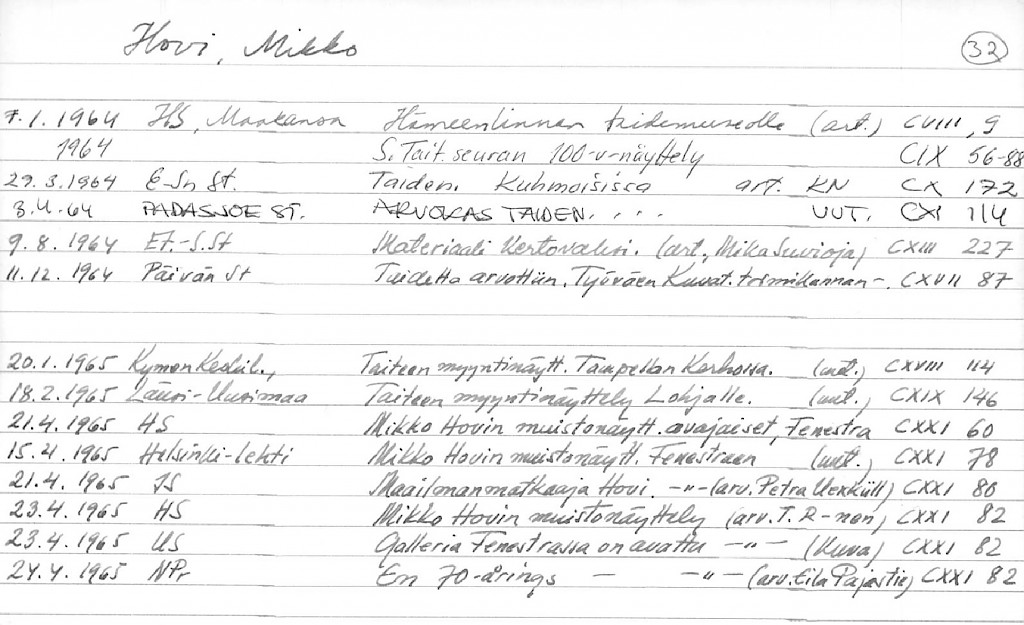 Hovi, Mikko 32
7.1.1964 HS, Maakanoa Hämeenlinnan taidemuseolle (art.) CVIII, 9
1964 S. Tait. seuran 100-v-näyttely CIX 56-88
29.3.1964 E-Sn St. Taiden. Kuhmoisissa art. KN CX 172
3.4.64 PADASJOE ST. ARVOKAS TAIDEN. . . . UUT. CXI 114
9.8.1964 Et.-S.St Materiaali kertovaksi. (art. Mika Suvioja) CXIII 227
11.12.1964 Päivän St Taidetta arvottiin. Työväen Kuvat. toimikannan-. CXVII 87
20.1.1965 Kymen Keskil., Taiteen myyntinäytt. Tampellan Kerhossa. (uut.) CXVIII 114
18.2.1965 Länsi-Uusimaa Taiteen myyntinäyttely Lohjalle. (uut.) CXIX 146
21.4.1965 HS Mikko Hovin muistonäytt. avajaiset, Fenestra CXXI 60
15.4.1965 Helsinki-lehti Mikko Hovin muistonäytt. Fenestraan (uut.) CXXI 78
21.4.1965 IS Maailmanmatkaaja Hovi. -"- (arv. Petra Uexküll) CXXI 80
23.4.1965 HS Mikko Hovin muistonäyttely (arv. T. R-nen) CXXI 82
23.4.1965 US Galleria Fenestrassa on avattu -"- (kuva) CXXI 82
24.4.1965 NPr En 70-årings - -"- (arv. Eila Pajastie) CXXI 82